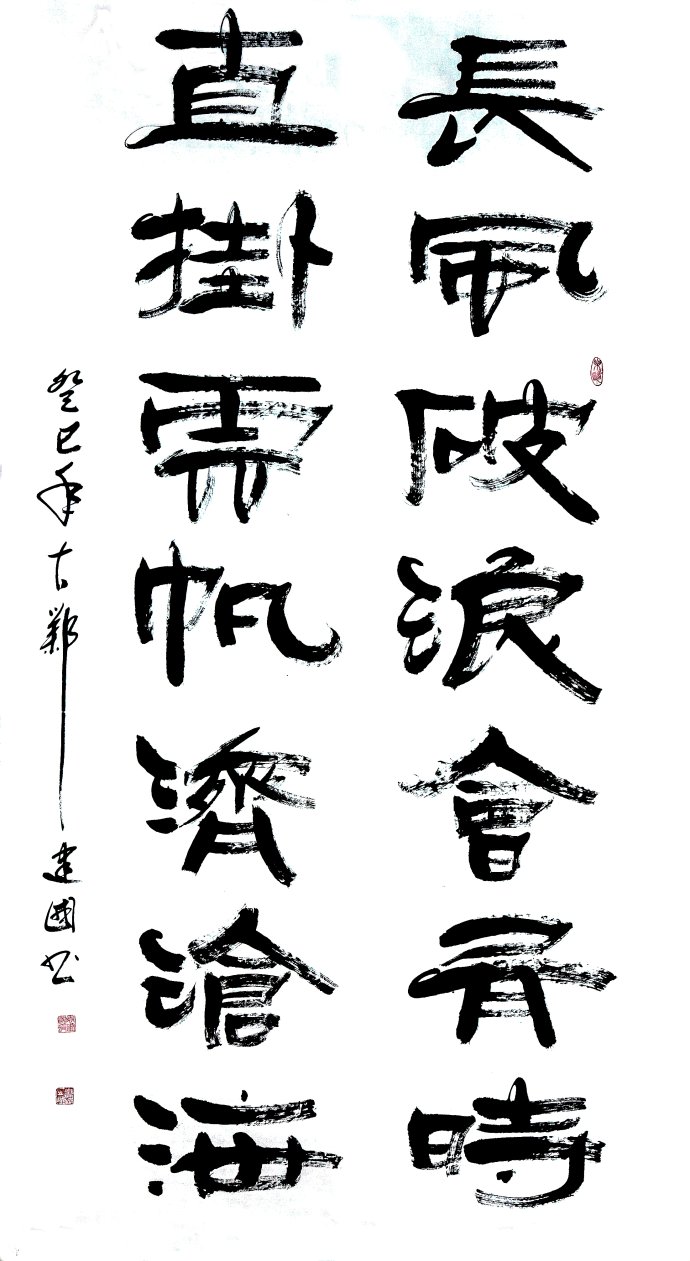 長風破浪會有時
直掛雲帆濟滄海
癸巳年古鄴建國书